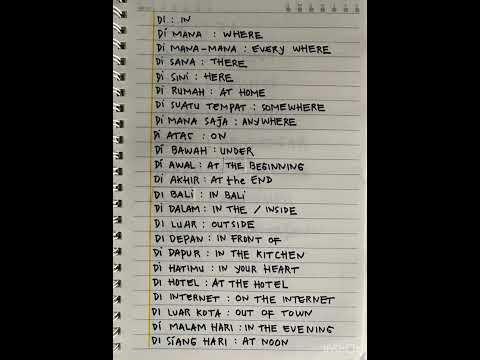 Di : IN
Di MANA : WHERE
Di MANA-MANA : EVERY WHERE
Di SANA : THERE
Di SiNi : HERE
Di RUMAH : AT HOME
Di SUATU TEMPAT : SOMEWHERE
Di MANA SAJA : ANYWHERE
Di ATAS : ON
Di BAWAH : UNDER
Di AWAL : AT THE BEGINNING
Di AKHIR : AT the END
Di BALi : IN BALi
Di DALAM : IN THE / INSIDE
Di LUAR : OUTSIDE
Di DEPAN : IN FRONT OF
Di DAPUR : IN THE KITCHEN
Di HATIMU : IN YOUR HEART
Di HOTEL : AT THE HOTEL
Di INTERNET : ON THE INTERNET
Di LUAR KOTA : OUT OF TOWN
Di MALAM HARI : IN THE EVENING
Di SiANG HARI : AT NOON